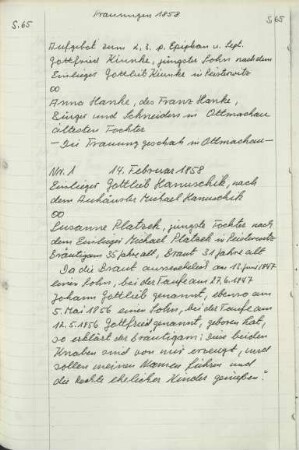 Trauungen 1858
S. 65
S. 65
Aufgebot zum 2. 3. p. Epiphan u. Sept.
Gottfried Kunke, jüngster Sohn nach dem
Einlieger Gottlieb Kunke in Peisterwitz
∞
Anna Hanke, des Franz Hanke,
Bürger und Schneiders in Ottmachau
ältesten Tochter
- Die Trauung geschah in Ottmachau -
Nr. 1 14. Februar 1858
Einlieger Gottlieb Hanuschik, nach
dem Auhäusler Michael Hanuschik
∞
Susanne Platzek, jüngste Tochter nach
dem Einlieger Michael Platzek in Peisterwitz
Bräutigam 35 Jahre alt, Braut 31 Jahre alt
Da die Braut ausserehelich am 12. Juni 1847
einen Sohn, bei der Taufe am 27.6.1847
Johann Gottlieb genannt, ebenso am
5. Mai 1856 einen Sohn, bei der Taufe am
12.5.1856 Gottfried genannt, geboren hat,
so erklärt der Bräutigam: "Diese beiden
Knaben sind von mir erzeugt, und
sollen meinen Namen führen und
die Rechte ehelicher Kinder genießen."